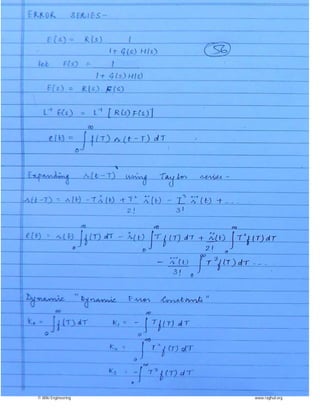 ERROR SERIES-
E(s) = R(s) 1
1+ G(s) H(s)
56
let F(s) = 1
1+ G(s) H(s)
E(s) = R(s) F(s)
L⁻¹ E(s) = L⁻¹ [ R(s) F(s) ]
e(t) = ∫₀^∞ f(T) r(t-T) dT
Expanding r(t-T) using Taylor series -
r(t-T) = r(t) - Tṙ(t) + T² r̈(t) - T³ r⃛(t) + ...
2! 3!
e(t) = r(t) ∫₀^∞ f(T) dT - ṙ(t) ∫₀^∞ T f(T) dT + r̈(t) ∫₀^∞ T² f(T) dT
2!
- r⃛(t) ∫₀^∞ T³ f(T) dT ...
3!
Dynamic "Dynamic Error Constants"
K₀ = ∫₀^∞ f(T) dT K₁ = - ∫₀^∞ T f(T) dT
K₂ = ∫₀^∞ T² f(T) dT
K₃ = - ∫₀^∞ T³ f(T) dT
www.raghul.org